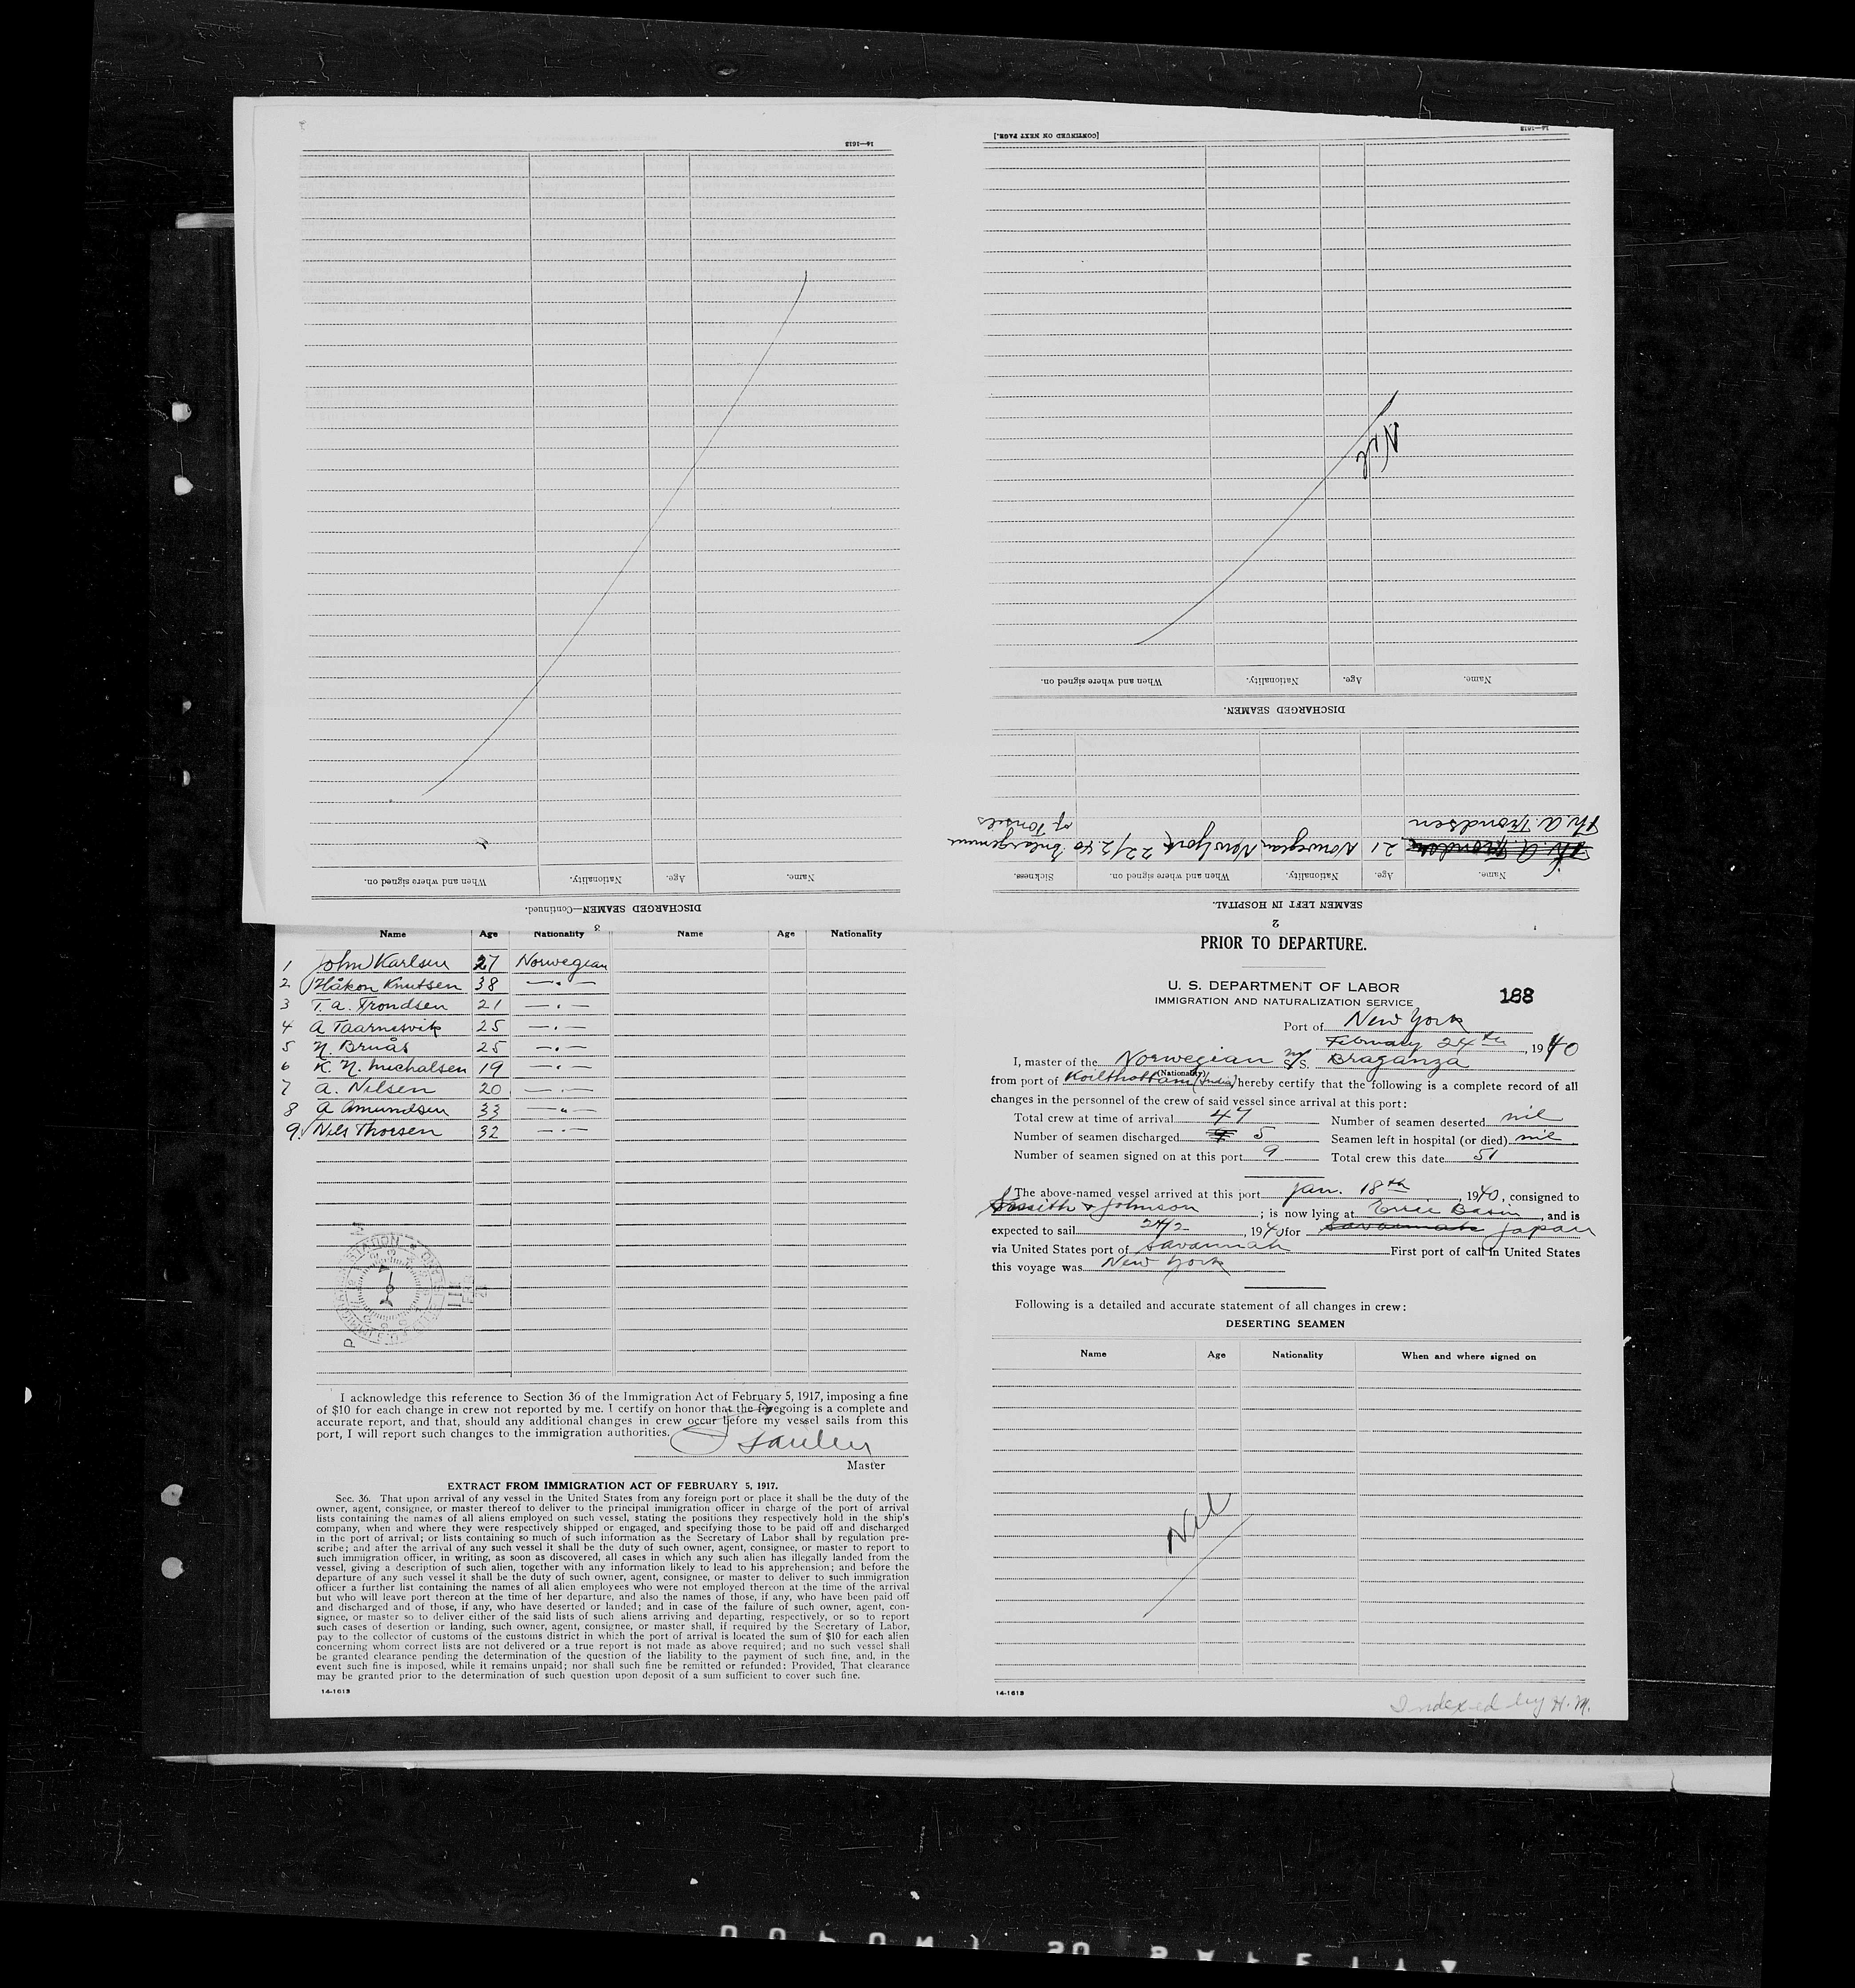 DISCHARGED SEAMEN—Continued.
Name. Age. Nationality. When and where signed on.
14—1613
2
SEAMEN LEFT IN HOSPITAL.
Name. Age. Nationality. When and where signed on. Sickness.
Th. A. Trondsen 21 Norwegian New York 22/2 40 Enlargement
Th. A. Trondsen of Tonsils
DISCHARGED SEAMEN.
Name. Age. Nationality. When and where signed on.
Nil
[CONTINUED ON NEXT PAGE.]
14—1613
3
Name Age Nationality Name Age Nationality
1 John Karlsen 27 Norwegian
2 Håkon Knutsen 38 — " —
3 T. A. Trondsen 21 — " —
4 A Taarnesvik 25 — " —
5 N. Bruås 25 — " —
6 K. N. Michalsen 19 — " —
7 A. Nilsen 20 — " —
8 A Amundsen 33 — " —
9. Nils Thorsen 32 — " —
I acknowledge this reference to Section 36 of the Immigration Act of February 5, 1917, imposing a fine
of $10 for each change in crew not reported by me. I certify on honor that the foregoing is a complete and
accurate report, and that, should any additional changes in crew occur before my vessel sails from this
port, I will report such changes to the immigration authorities.
Master
EXTRACT FROM IMMIGRATION ACT OF FEBRUARY 5, 1917.
Sec. 36. That upon arrival of any vessel in the United States from any foreign port or place it shall be the duty of the
owner, agent, consignee, or master thereof to deliver to the principal immigration officer in charge of the port of arrival
lists containing the names of all aliens employed on such vessel, stating the positions they respectively hold in the ship's
company, when and where they were respectively shipped or engaged, and specifying those to be paid off and discharged
in the port of arrival; or lists containing so much of such information as the Secretary of Labor shall by regulation pre-
scribe; and after the arrival of any such vessel it shall be the duty of such owner, agent, consignee, or master to report to
such immigration officer, in writing, as soon as discovered, all cases in which any such alien has illegally landed from the
vessel, giving a description of such alien, together with any information likely to lead to his apprehension; and before the
departure of any such vessel it shall be the duty of such owner, agent, consignee, or master to deliver to such immigration
officer a further list containing the names of all alien employees who were not employed thereon at the time of the arrival
but who will leave port thereon at the time of her departure, and also the names of those, if any, who have been paid off
and discharged and of those, if any, who have deserted or landed; and in case of the failure of such owner, agent, con-
signee, or master so to deliver either of the said lists of such aliens arriving and departing, respectively, or so to report
such cases of desertion or landing, such owner, agent, consignee, or master shall, if required by the Secretary of Labor,
pay to the collector of customs of the customs district in which the port of arrival is located the sum of $10 for each alien
concerning whom correct lists are not delivered or a true report is not made as above required; and no such vessel shall
be granted clearance pending the determination of the question of the liability to the payment of such fine, and, in the
event such fine is imposed, while it remains unpaid; nor shall such fine be remitted or refunded: Provided, That clearance
may be granted prior to the determination of such question upon deposit of a sum sufficient to cover such fine.
14-1613
PRIOR TO DEPARTURE.
U. S. DEPARTMENT OF LABOR
IMMIGRATION AND NATURALIZATION SERVICE
188
Port of New York
February 24th, 1940
I, master of the Norwegian M/S. Braganza
(Nationality)
from port of Koilthottam (India) hereby certify that the following is a complete record of all
changes in the personnel of the crew of said vessel since arrival at this port:
Total crew at time of arrival 47 Number of seamen deserted nil
Number of seamen discharged 5 Seamen left in hospital (or died) nil
Number of seamen signed on at this port 9 Total crew this date 51
The above-named vessel arrived at this port Jan. 18th, 1940, consigned to
Smith & Johnson; is now lying at Erie Basin, and is
expected to sail 24/2, 1940 for Savannah Japan
via United States port of Savannah First port of call in United States
this voyage was New York
Following is a detailed and accurate statement of all changes in crew:
DESERTING SEAMEN
Name Age Nationality When and where signed on
Nil
14-1613
Indexed by H. M.